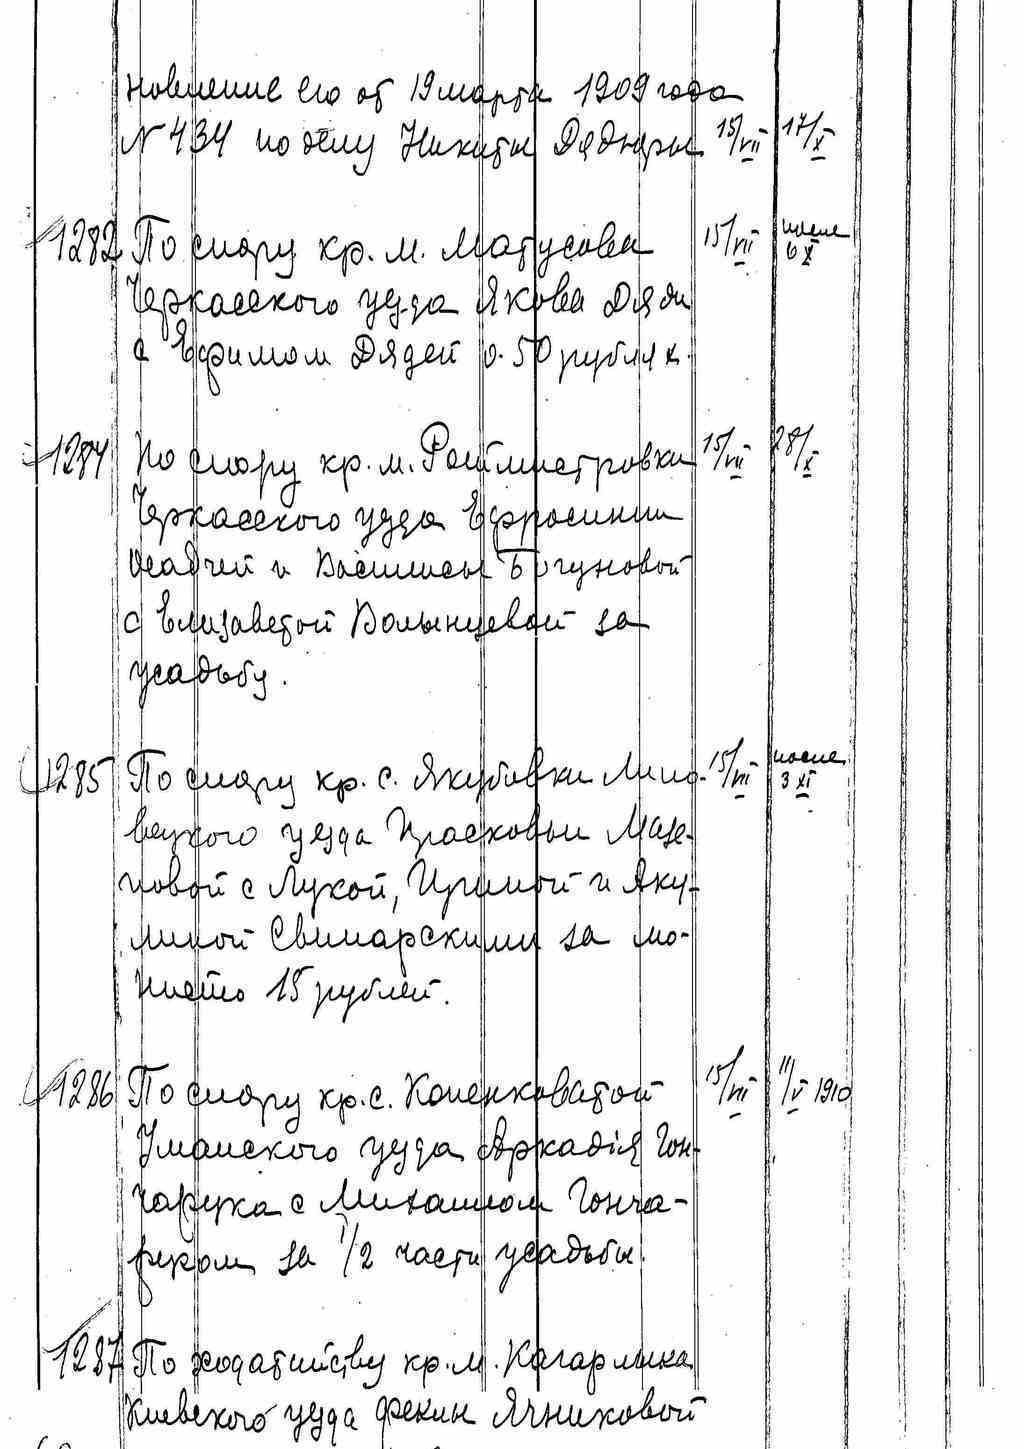 новление его от 19 марта 1909 года
№ 434 по делу Никиты Дядюры 15/VII 17/X
1282 По спору кр. м. Матусова 15/VII после 6 X
Черкасского уезда Якова Дяди
с Ефимом Дядей о 50 рублях.
1284 По спору кр. м. Ротмистровки 15/VII 28/X
Черкасского уезда Ефросинии
Осадчей и Василисы Богуновой
с Елизаветой Волынцевой за
усадьбу.
1285 По спору кр. с. Якубовки Липо- 15/VII после 3 XI
вецкого уезда Прасковьи Мазе-
повой с Лукой, Ириной и Аку-
линой Свинарскими за мо-
нисто 15 рублей.
1286 По спору кр. с. Копенковатой 15/VII 11/V 1910
Уманского уезда Аркадія Гон-
чарука с Михаилом Гонча-
руком за 1/2 части усадьбы.
1287 По ходатайству кр. м. Кагарлыка
Киевского уезда Феклы Ячниковой